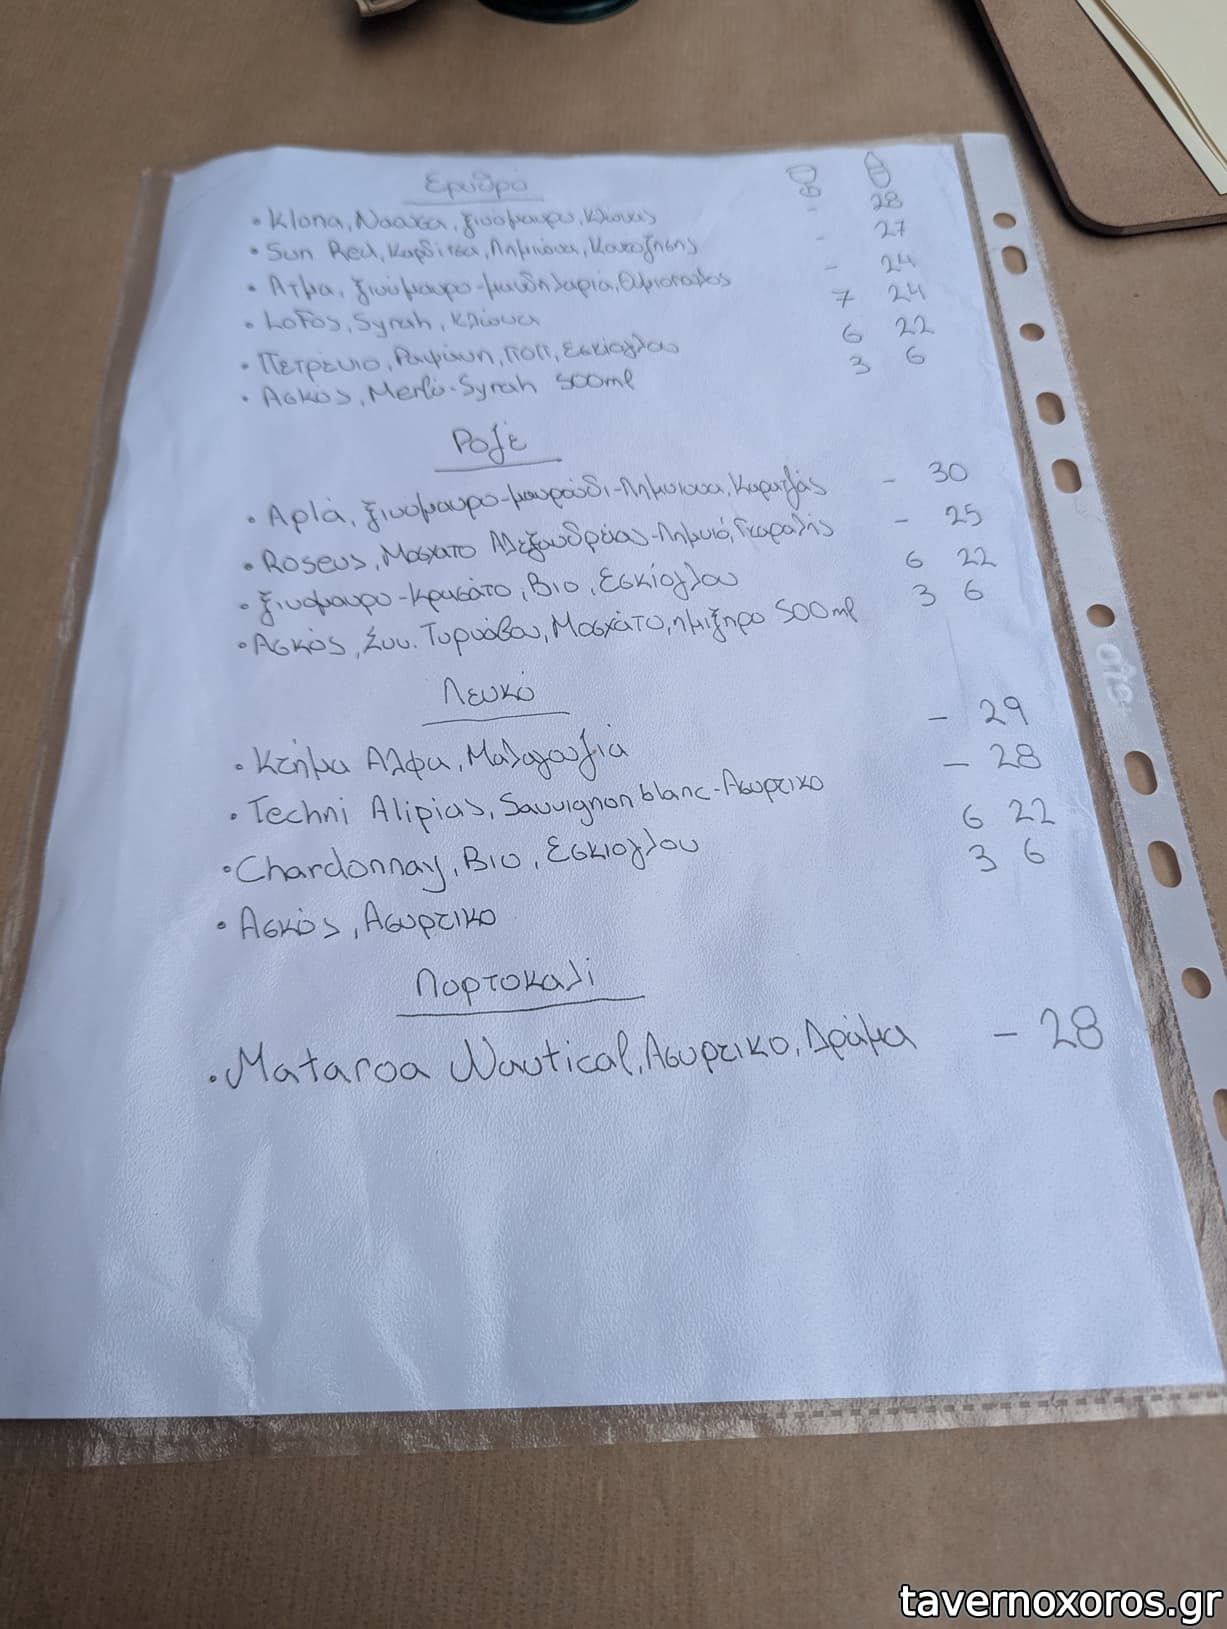 Ερυθρό
• Klona, Νάουσα, ξινόμαυρο, Κλώνας 28
• Sun Red, Καρδίτσα, Λημνιώνα, 27
• Ατμα, ξινόμαυρο-μανδηλαριά, Θυμιόπουλος - 24
• Lofos, Syrah, Κλώνα 7 24
• Πετρέινο, Ραψάνη, ΠΟΠ, Εσκίογλου 6 22
• Ασκός, Merlό-Syrah 500ml 3 6
Ροζέ
• Apla, ξινόμαυρο-μαυρούδι-Λημνιονα, Καρατζάς - 30
• Roseus, Μοσχατο Αλεξανδρείας-Λημνιό, Γκαραλής - 25
• ξινομαυρο-Κρασάτο, Βιο, Εσκίογλου 6 22
• Ασκός, Συν. Τυρνάβου, Μοσχάτο, ημίξηρο 500ml 3 6
Λευκό
• Κτήμα Αλφα, Μαλαγουζιά - 29
• Techni Alipias, Sauvignon blanc-Ασυρτικο - 28
• Chardonnay, Βιο, Εσκιογλου 6 22
• Ασκός, Ασυρτικο 3 6
Πορτοκαλι
• Mataroa Nautical, Ασυρτικο, Δράμα - 28
tavernoxoros.gr